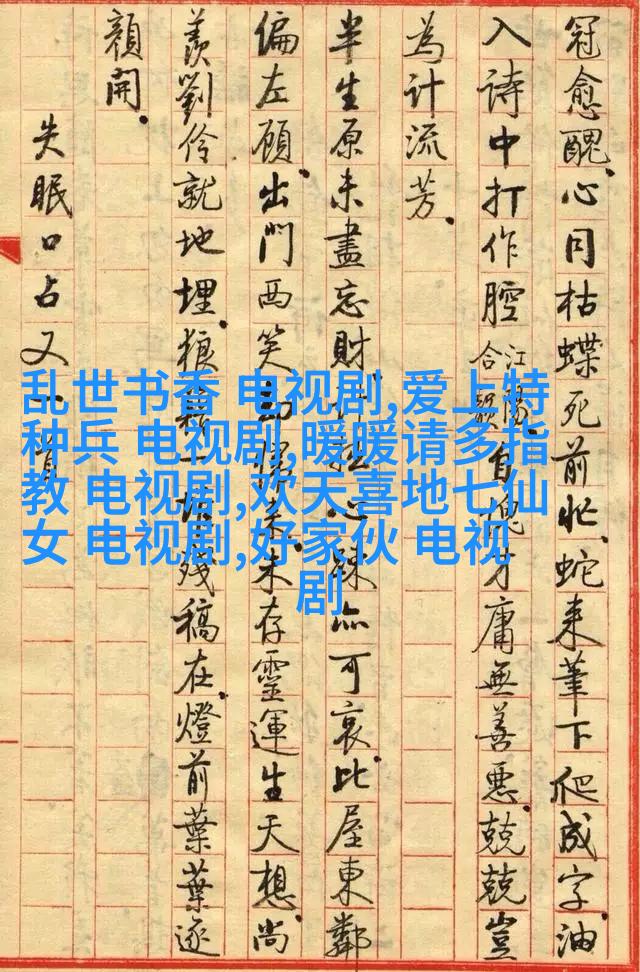 冠愈醜。心同枯蝶死前忙。蛇来筆下爬成字。油
入詩中打作腔江陽合韻。自愧才庸無善惡。兢兢豈
為計流芳。
半生原未盡忘財。心疎亦可哀。比屋東鄰
偏左顧。出門西笑来。未存靈運生天想。尚
羨劉伶就地埋。狼藉殘稿在。燈前葉葉逐
顏開。
失眠口占又一首
乱世书香 电视剧,爱上特
种兵 电视剧,暖暖请多指
教 电视剧,欢天喜地七仙
女 电视剧,好家伙 电视
剧